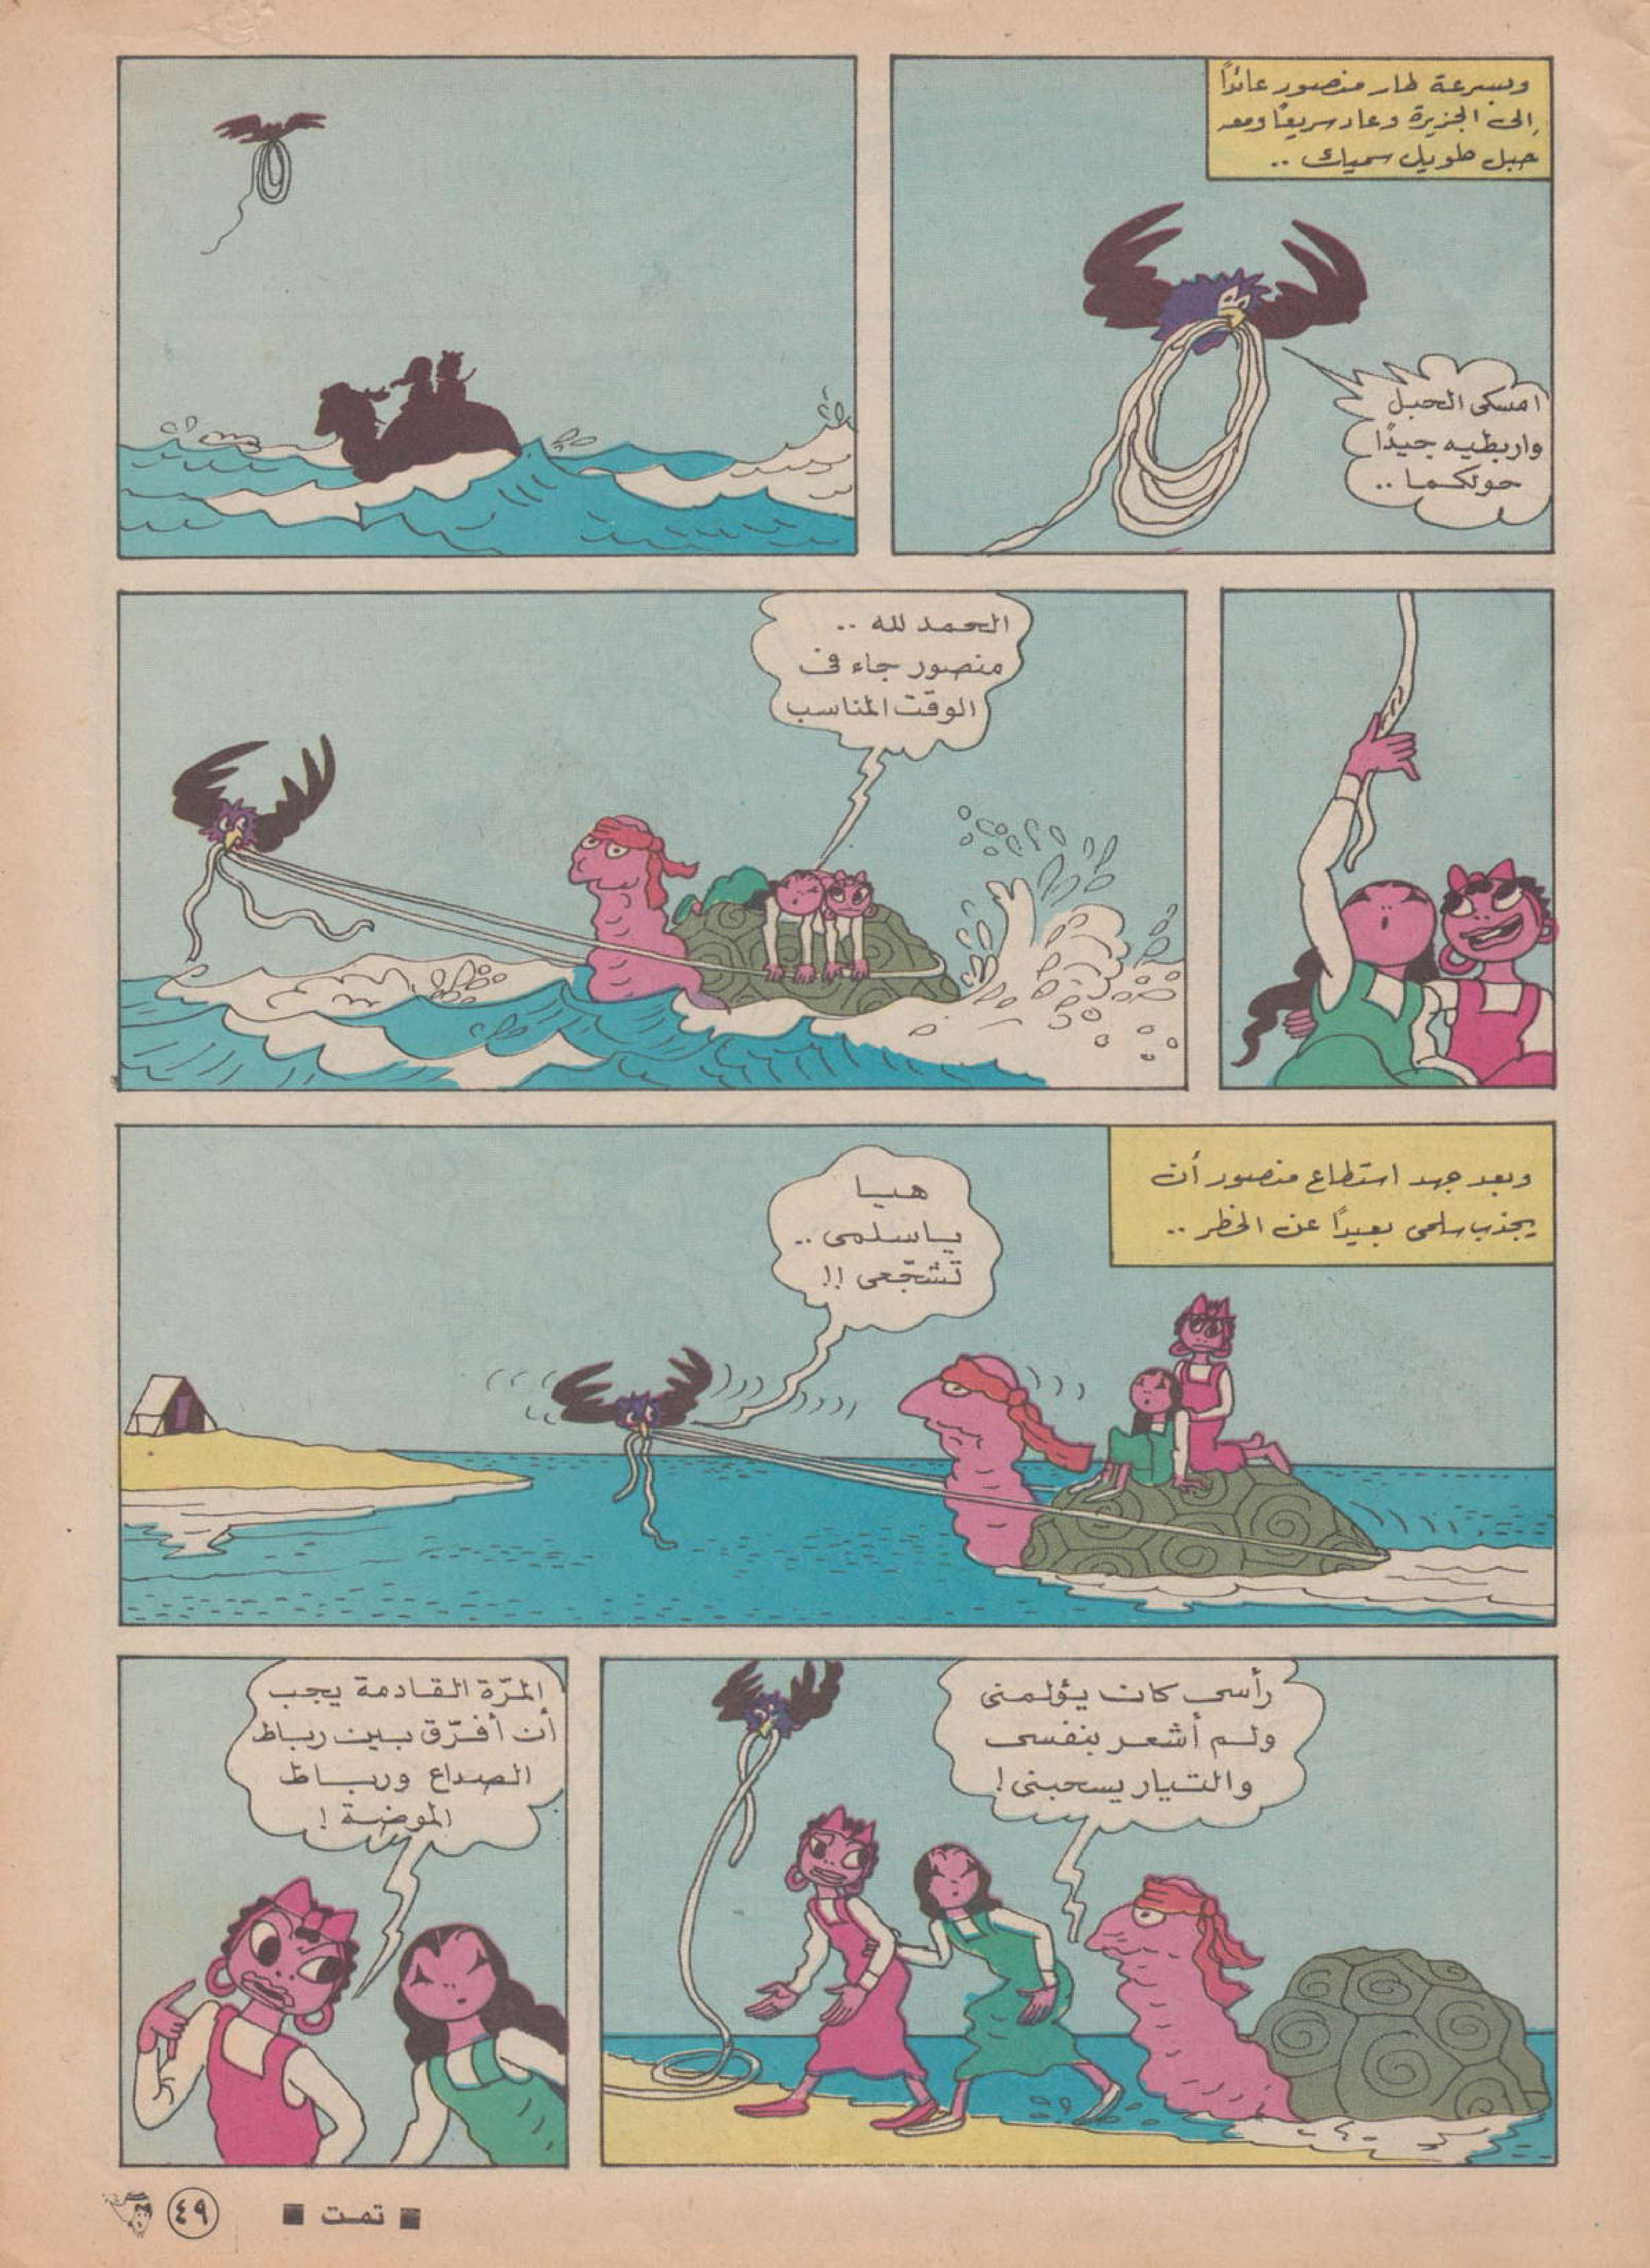 وبسرعة طار منصور عائدًا
إلى الجزيرة وعاد سريعًا ومعه
حبل طويل سميك ..
امسكى الحبل
واربطيه جيدًا
حولكما ..
الحمد لله ..
منصور جاء فى
الوقت المناسب
وبعد جهد استطاع منصور أن
يجذب سلمى بعيدًا عن الخطر ..
هيا
ياسلمى ..
تشجّعى !!
رأسى كان يؤلمنى
ولم أشعر بنفسى
والتيار يسحبنى !
المرّة القادمة يجب
أن أفرّق بين رباط
الصداع ورباط
الموضة !
■ تمت ■
٤٩